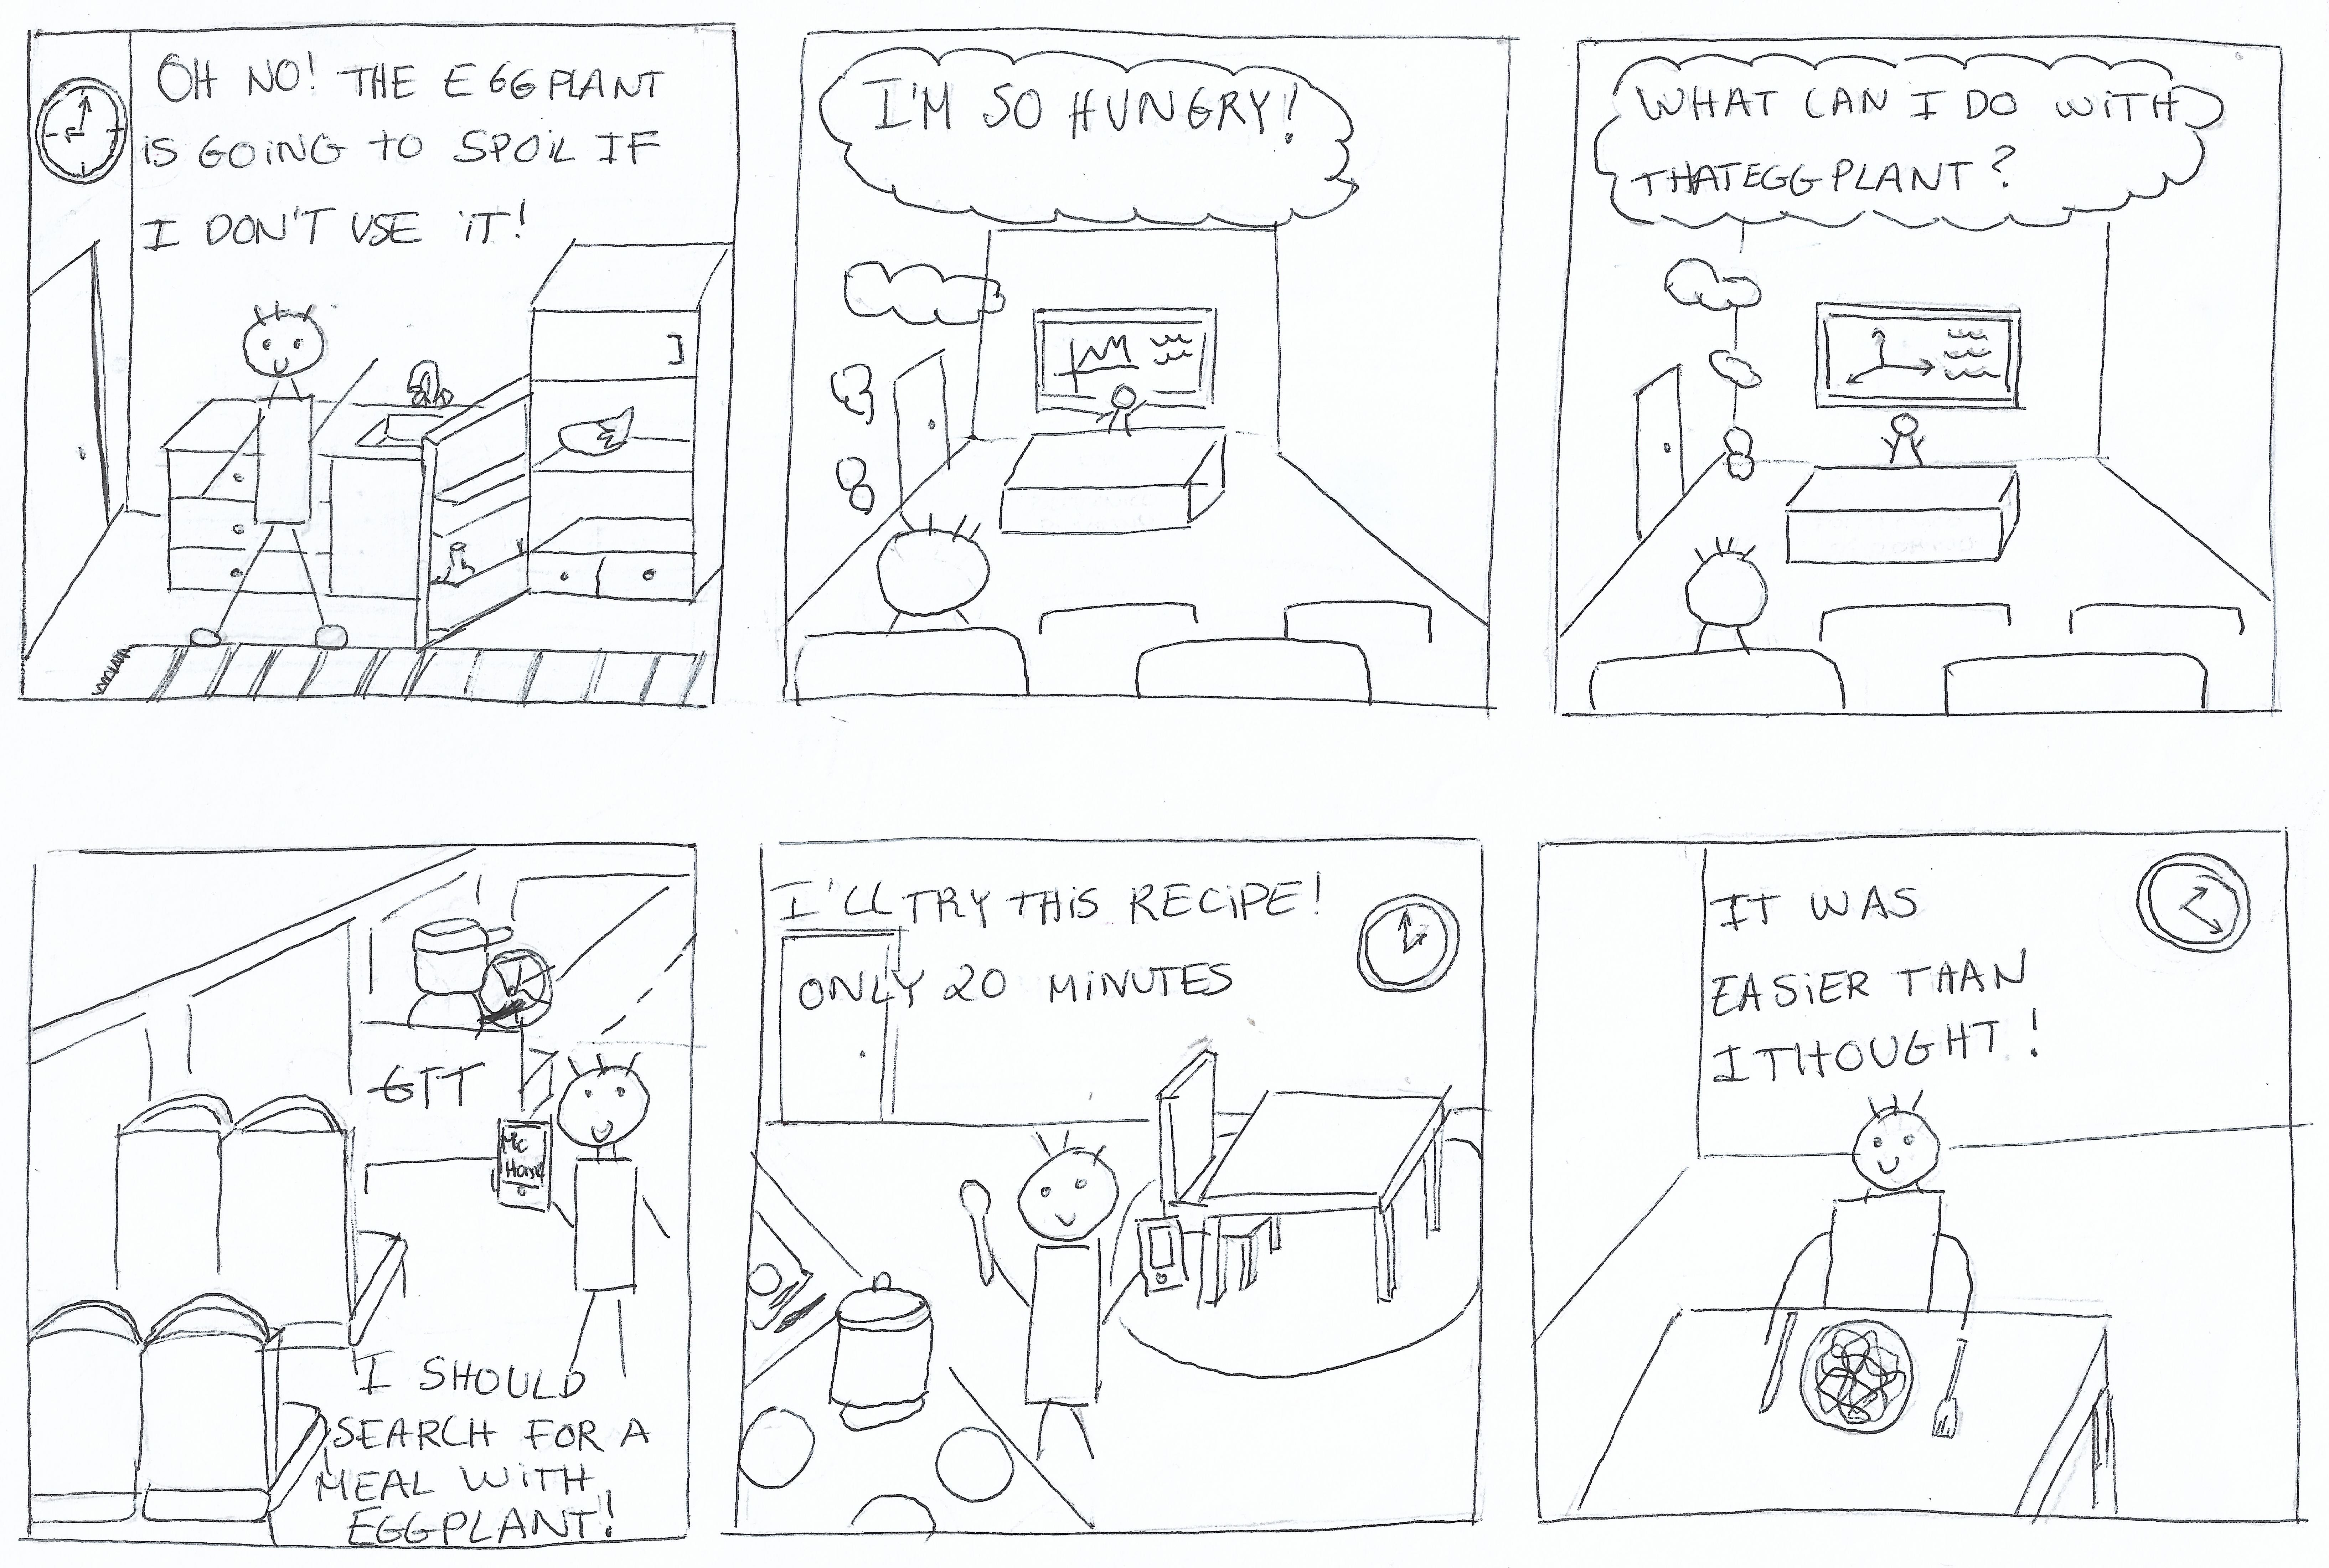 OH NO! THE EGGPLANT
IS GOING TO SPOIL IF
I DON'T USE IT!
I'M SO HUNGRY!
WHAT CAN I DO WITH
THATEGGPLANT?
GTT
Mc
I SHOULD
SEARCH FOR A
MEAL WITH
EGGPLANT!
I'LL TRY THIS RECIPE!
ONLY 20 MINUTES
IT WAS
EASIER THAN
I THOUGHT!